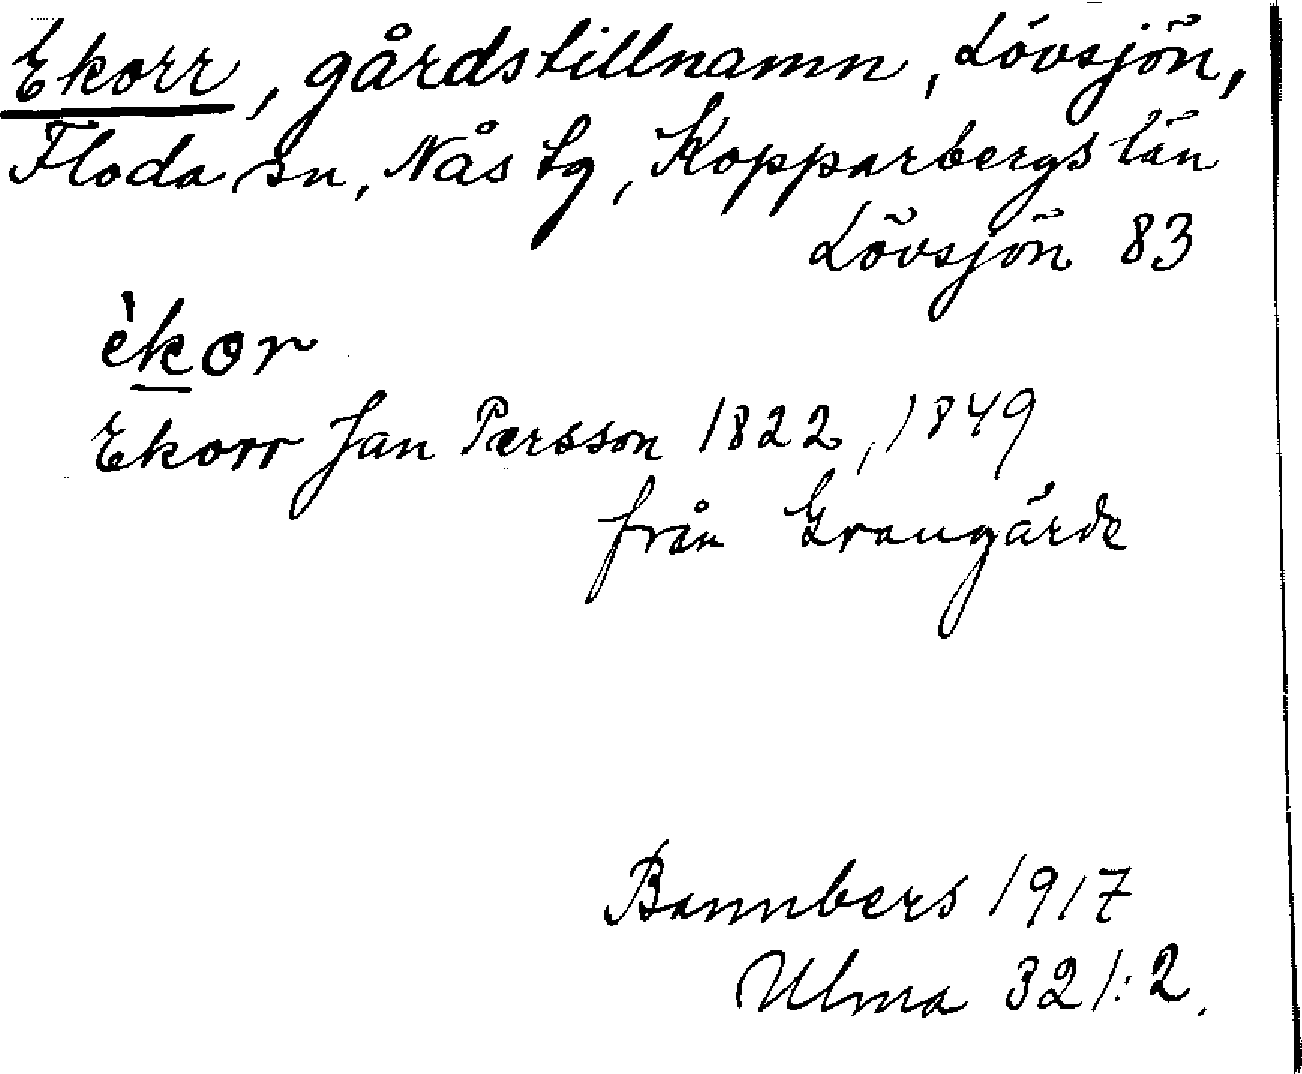 Ekorr, gårdstillnamn, Lövsjön,
Floda sn, Nås tg, Kopparbergs län
Lövsjön 83
èkor
Ekorr Jan Persson 1822, 1849
från Grangärde
Bannbers 1917
Ulma 321:2.